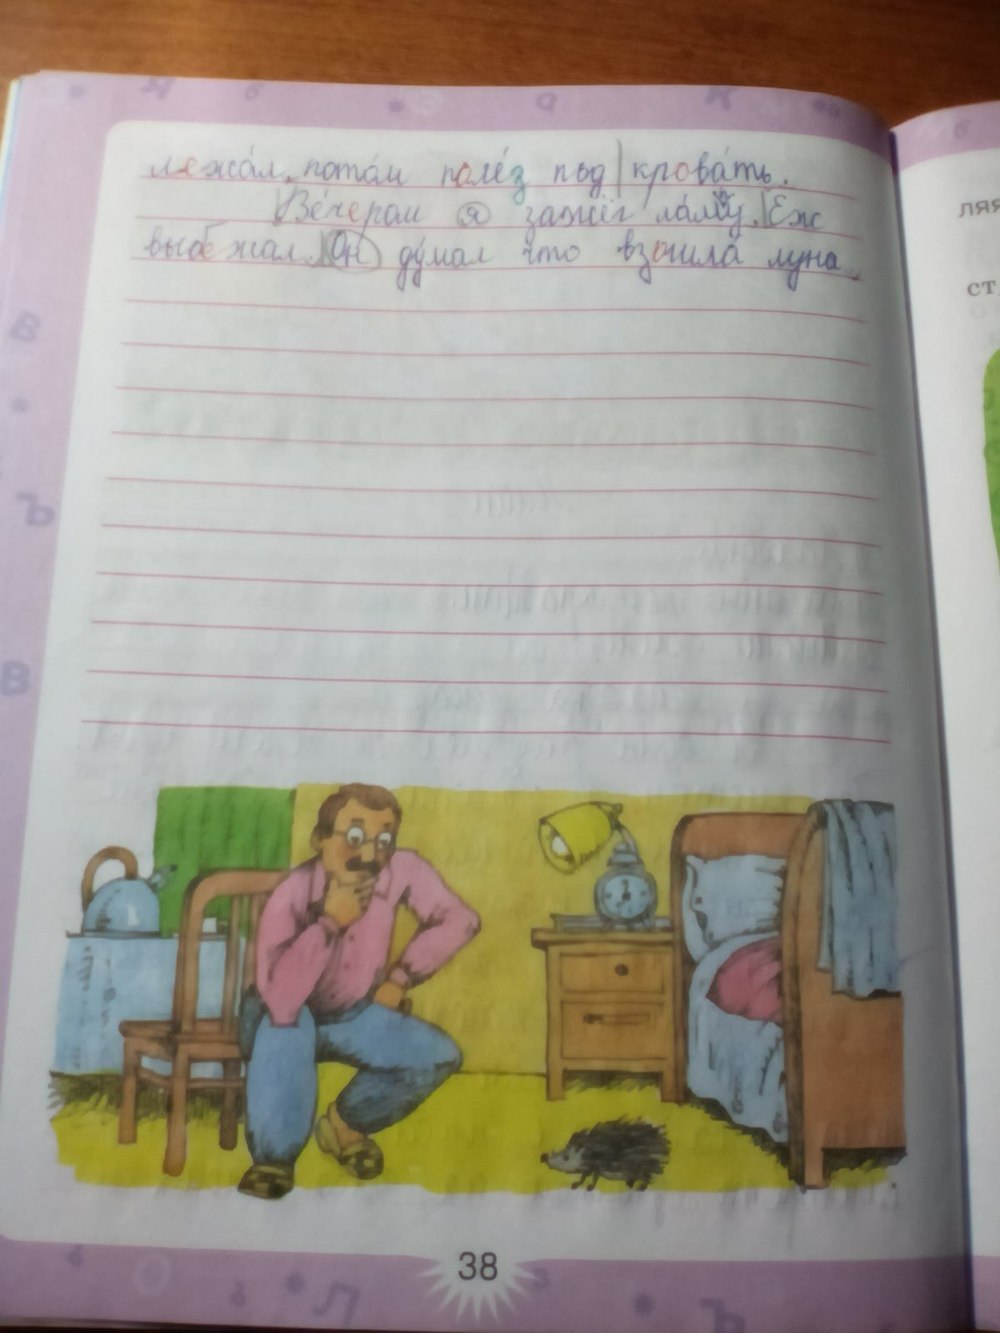 лежал, потом полез под кровать.
Вечером я зажёг лампу. Ёж
выбежал. Он думал что взошла луна.
38
ляя
ст